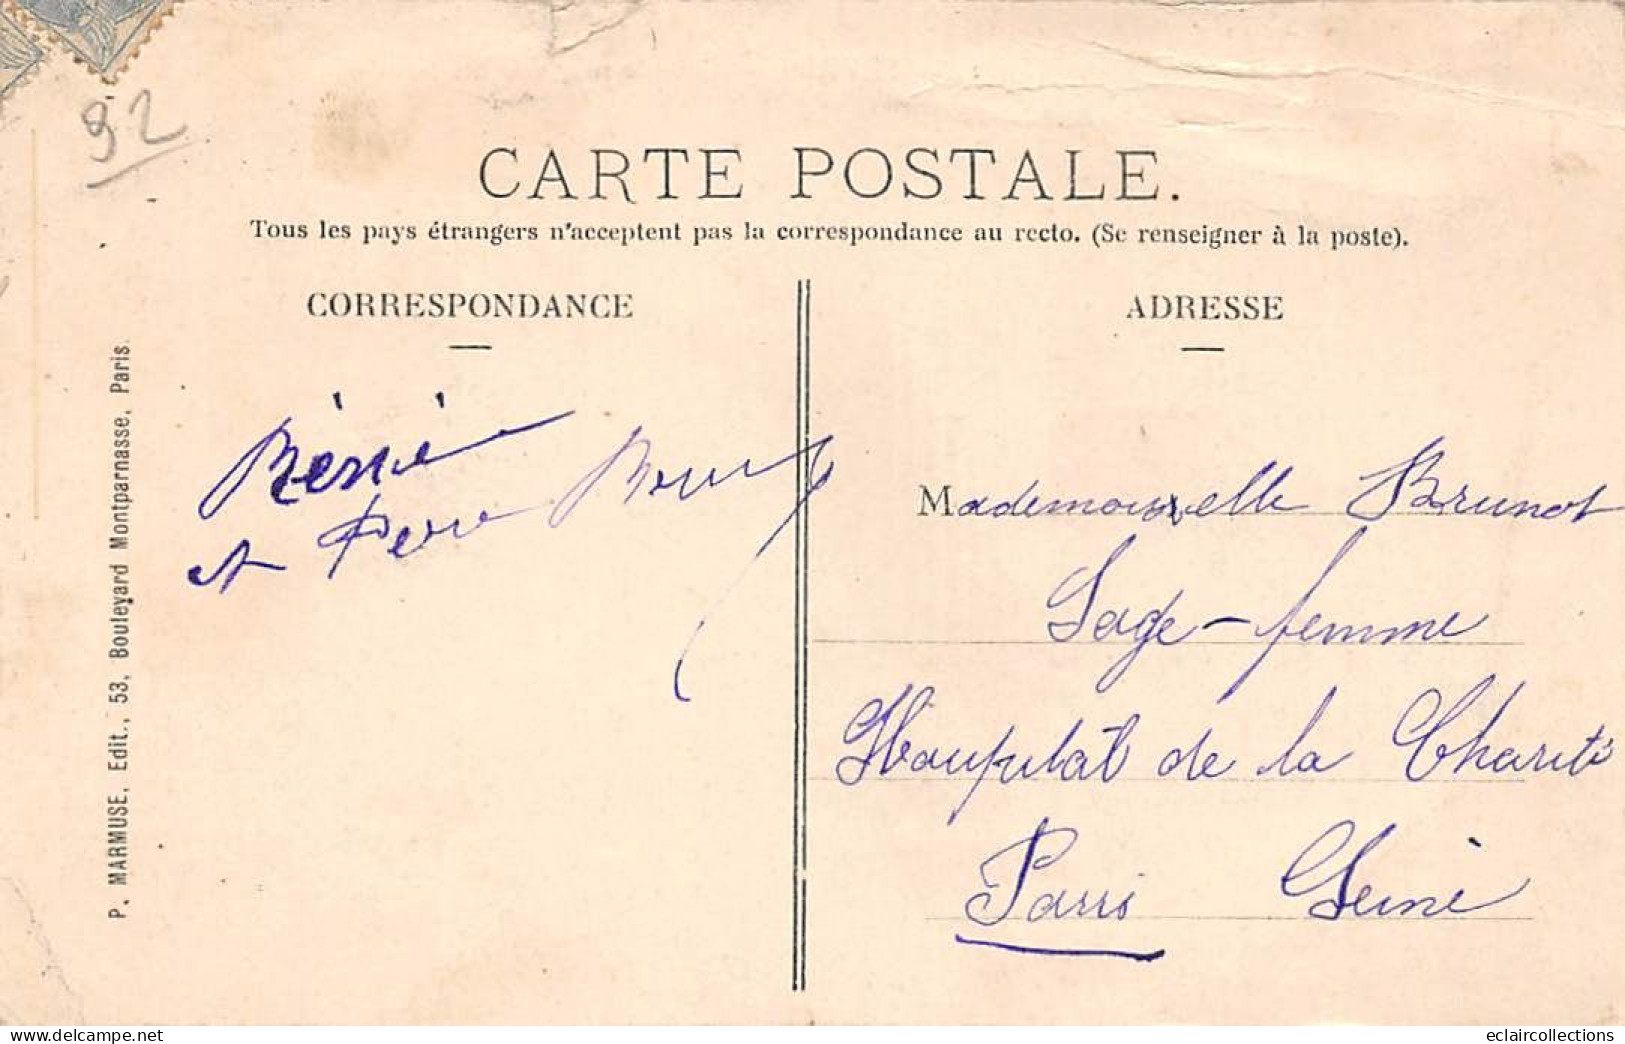 92
CARTE POSTALE.
Tous les pays étrangers n'acceptent pas la correspondance au recto. (Se renseigner à la poste).
CORRESPONDANCE
ADRESSE
P. MARMUSE, Edit., 53, Boulevard Montparnasse, Paris.
et
Mademoiselle Brunot
Sage-femme
Hôpital de la Charité
Paris Seine
www.delcampe.net
eclaircollections